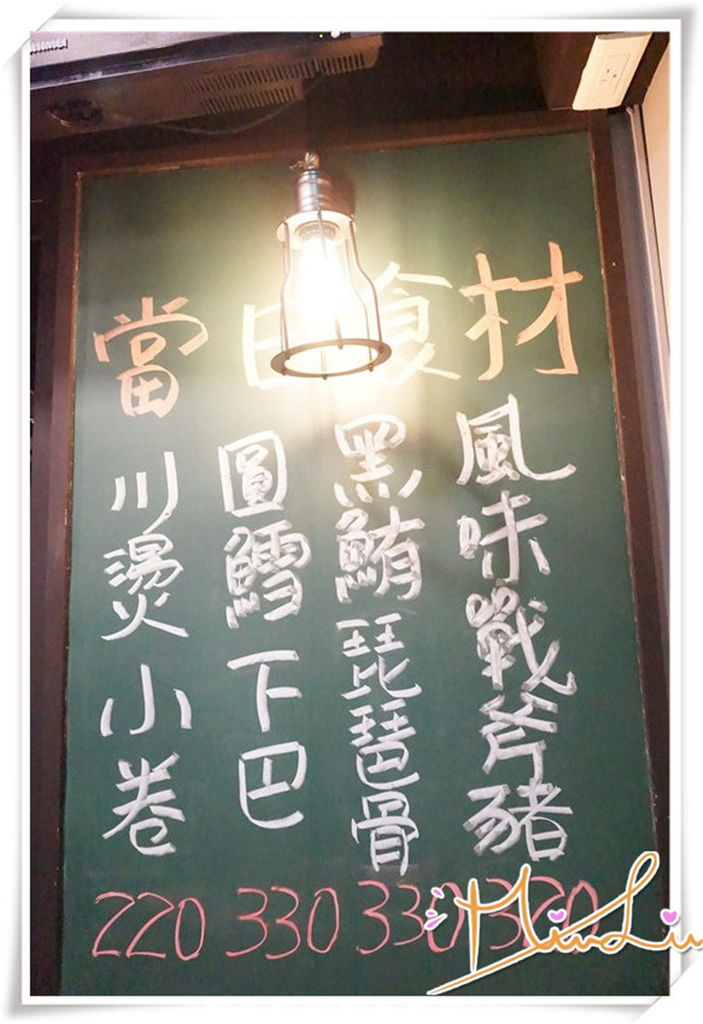 當日食材
風味戰斧豬
黑鮪琵琶骨
330
圓鱈下巴
330
川燙小卷
220